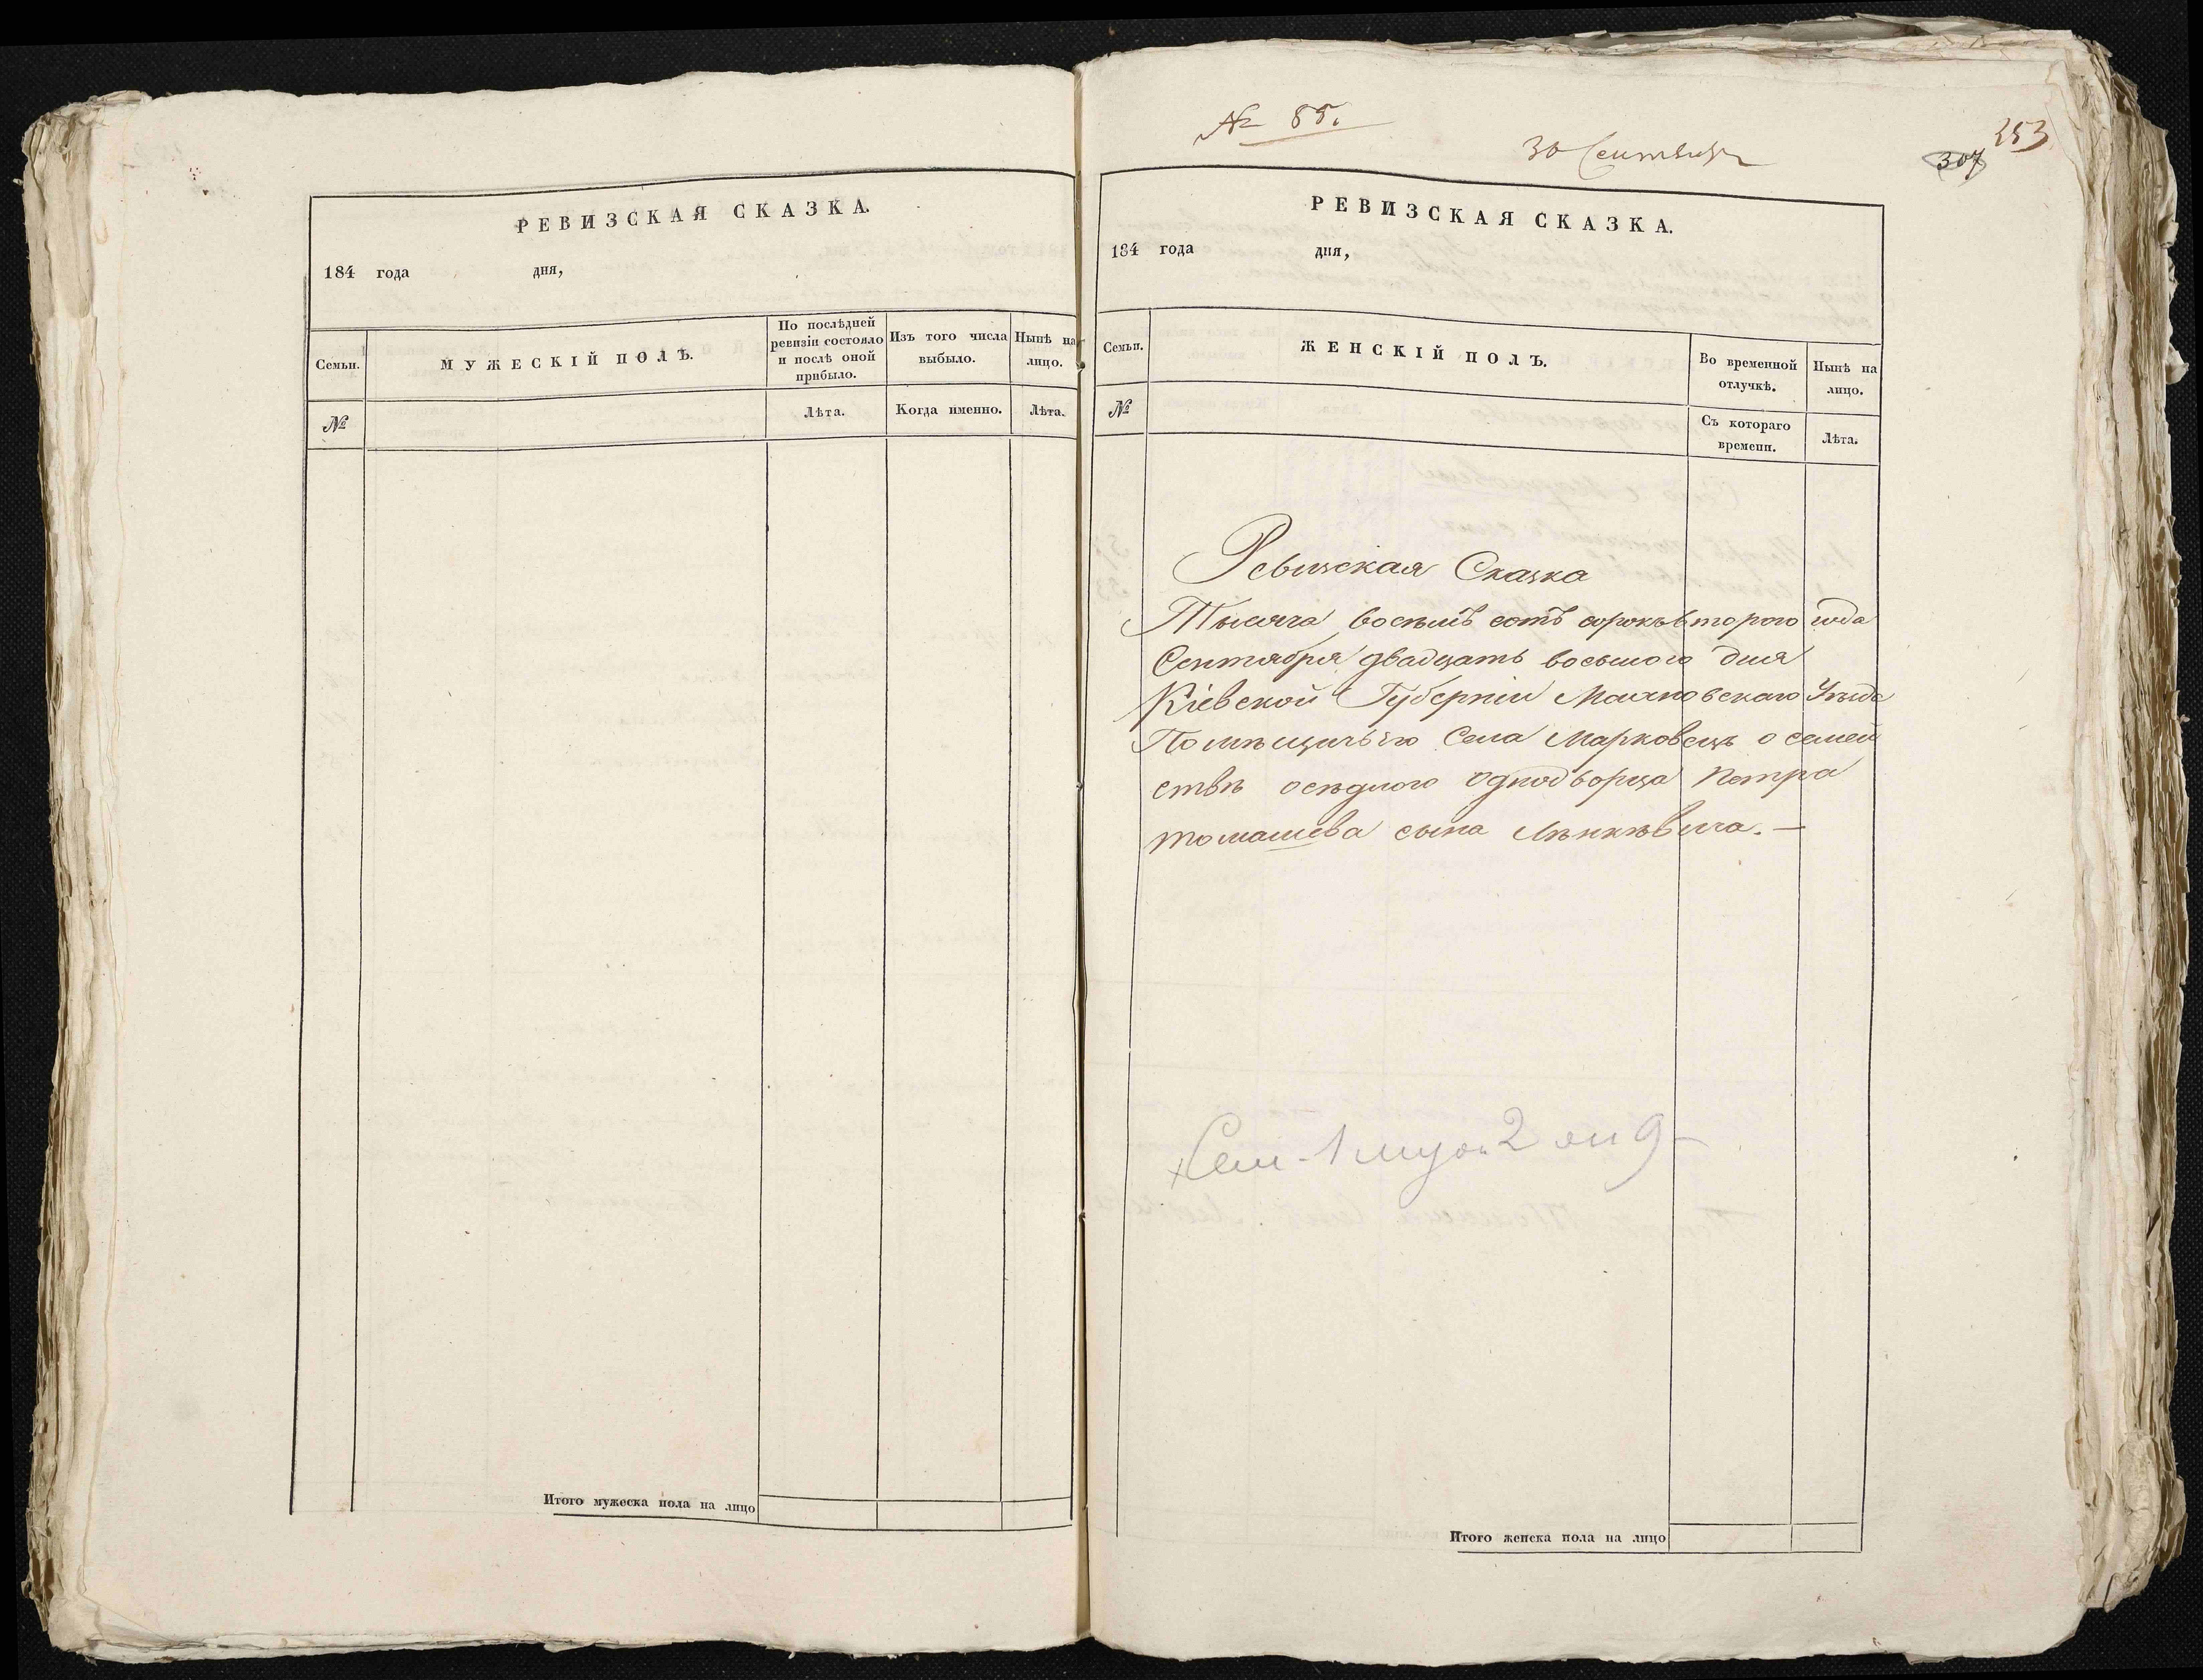 РЕВИЗСКАЯ СКАЗКА.
184 года дня,
Семьи.
МУЖЕСКІЙ ПОЛЪ.
По послѣдней ревизіи состояло и послѣ оной прибыло.
Изъ того числа выбыло.
Нынѣ на лицо.
№
Лѣта.
Когда именно.
Лѣта.
Итого мужеска пола на лицо
№ 85.
30 Сентября
253
307
РЕВИЗСКАЯ СКАЗКА.
184 года дня,
Семьи.
ЖЕНСКІЙ ПОЛЪ.
Во временной отлучкѣ.
Нынѣ на лицо.
№
Съ котораго времени.
Лѣта.
Ревизская Сказка
Тысяча восѣмъ сотъ сорокъ второго года
Сентября двадцать восьмого дня
Кіевской Губерніи Махновскаго Уѣзда
Помѣщичьего Села Марковецъ о семей
ствѣ осѣдлого однодворца Петра
томашева сына
Сем - 1 муж. 2 жн 9 -
Итого женска пола на лицо